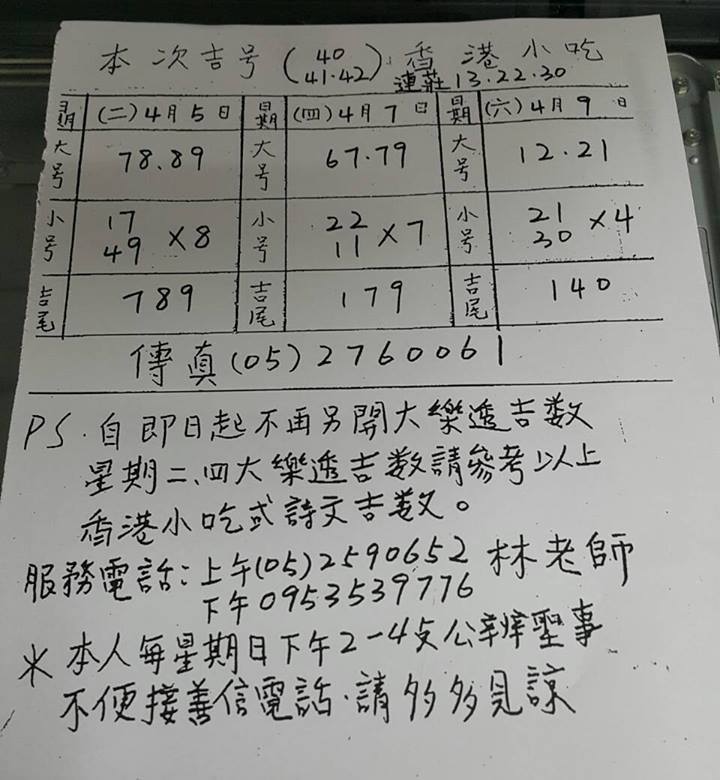 本次吉号(40 41.42)香港小吃
連莊13.22.30
星期 (二)4月5日 星期 (四)4月7日 星期 (六)4月9日
大号 78.89 大号 67.79 大号 12.21
小号 17 49 ×8 小号 22 11 ×7 小号 21 30 ×4
吉尾 789 吉尾 179 吉尾 140
傳真(05)2760061
PS.自即日起不再另開大樂透吉数
星期二、四大樂透吉数請參考以上
香港小吃或詩文吉数。
服務電話:上午(05)2590652 林老師
下午0953539776
*本人每星期日下午2-4点公辦聖事
不便接善信電話.請多多見諒